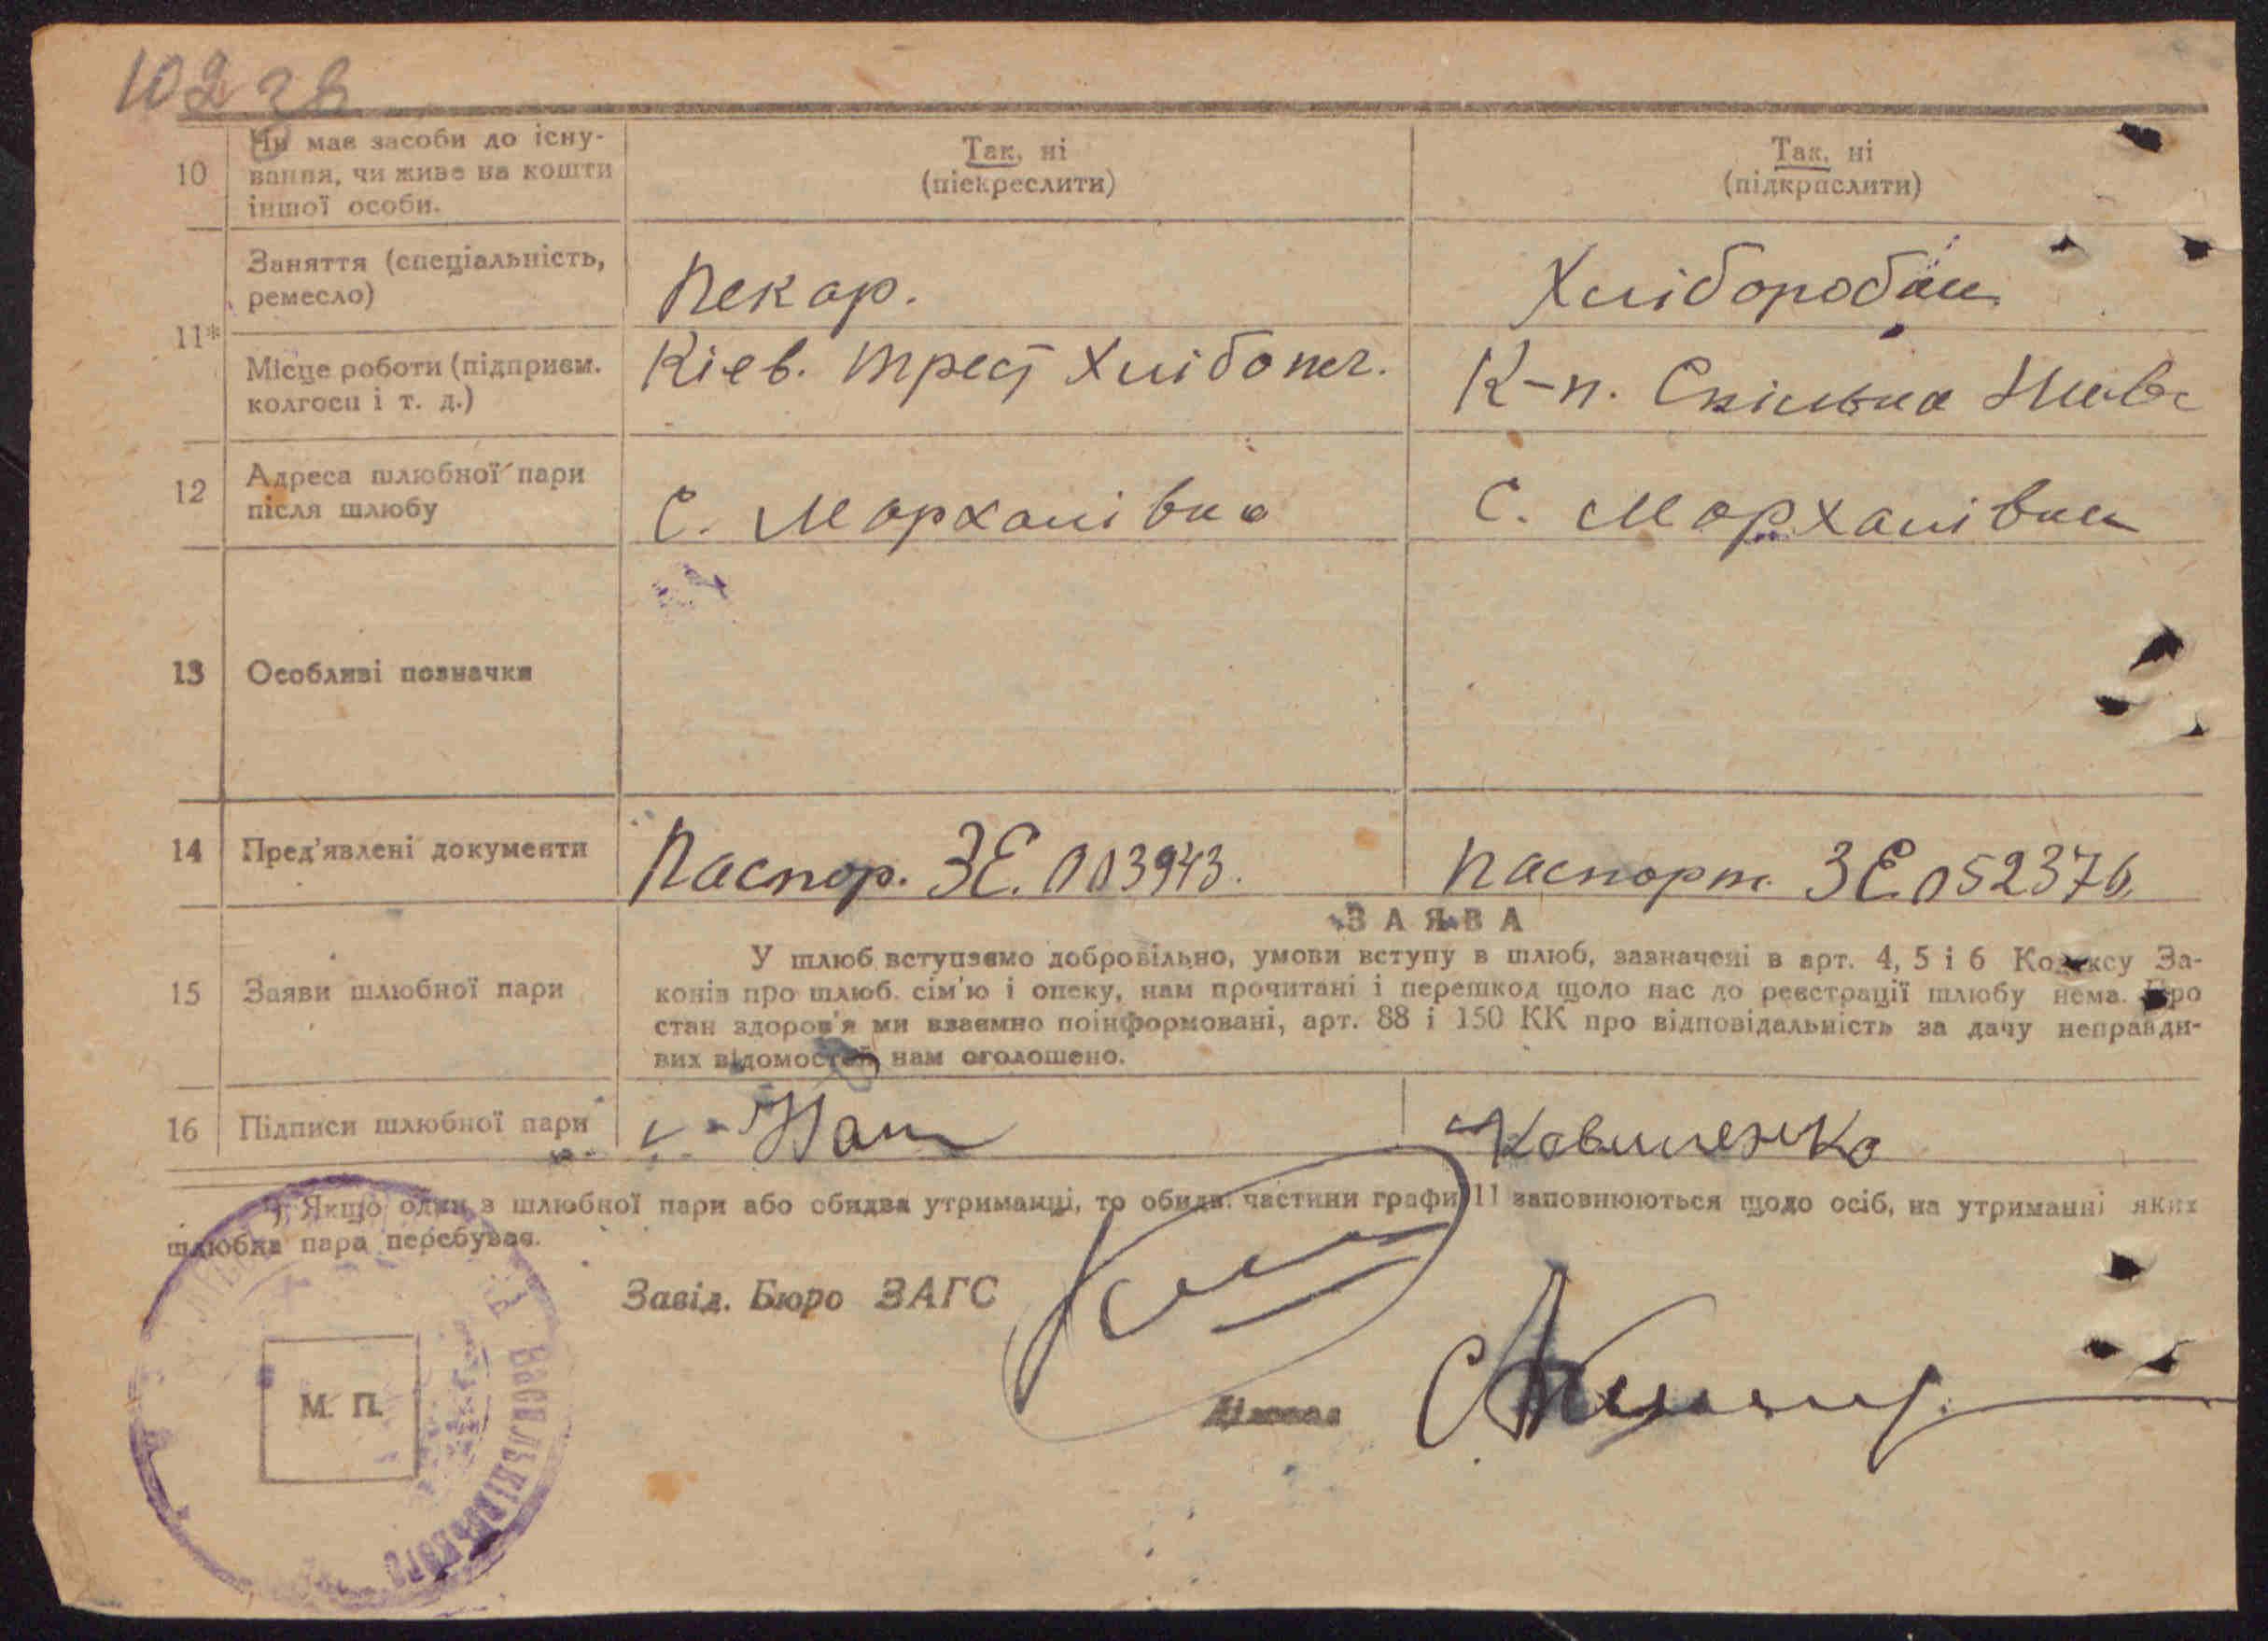 102 зв
10
Чи має засоби до існу-
вання, чи живе на кошти
іншої особи.
Так, ні
(піекреслити)
Так, ні
(підкрпслити)
11*
Заняття (спеціальність,
ремесло)
Пекар.
Хліборобан
Місце роботи (підприєм.
колгосп і т. д.)
Кіев. трест Хлібопеч.
К-п. Спільна Нива
12
Адреса шлюбної пари
після шлюбу
С. Мархалівка
С. Мархалівка
13
Особливі позначки
14
Пред'явлені документи
Паспор. ЗЕ. 003943.
паспорт ЗЕ 052376
15
Заяви шлюбної пари
ЗАЯВА
У шлюб вступаємо добровільно, умови вступу в шлюб, зазначені в арт. 4, 5 і 6 Кодексу За-
конів про шлюб. сім'ю і опеку, нам прочитані і перешкод щодо нас до реєстрації шлюбу нема. Про
стан здоров'я ми взаємно поінформовані, арт. 88 і 150 КК про відповідальність за дачу неправди-
вих відомостей нам оголошено.
16
Підписи шлюбної пари
Коваленко
*) Якщо один з шлюбної пари або обидва утриманці, то обидві частини графи 11 заповнюються щодо осіб, на утриманні яких
шлюбна пара перебуває.
Завід. Бюро ЗАГС
М. П.
ВАСИЛЬКІВСЬКОГО